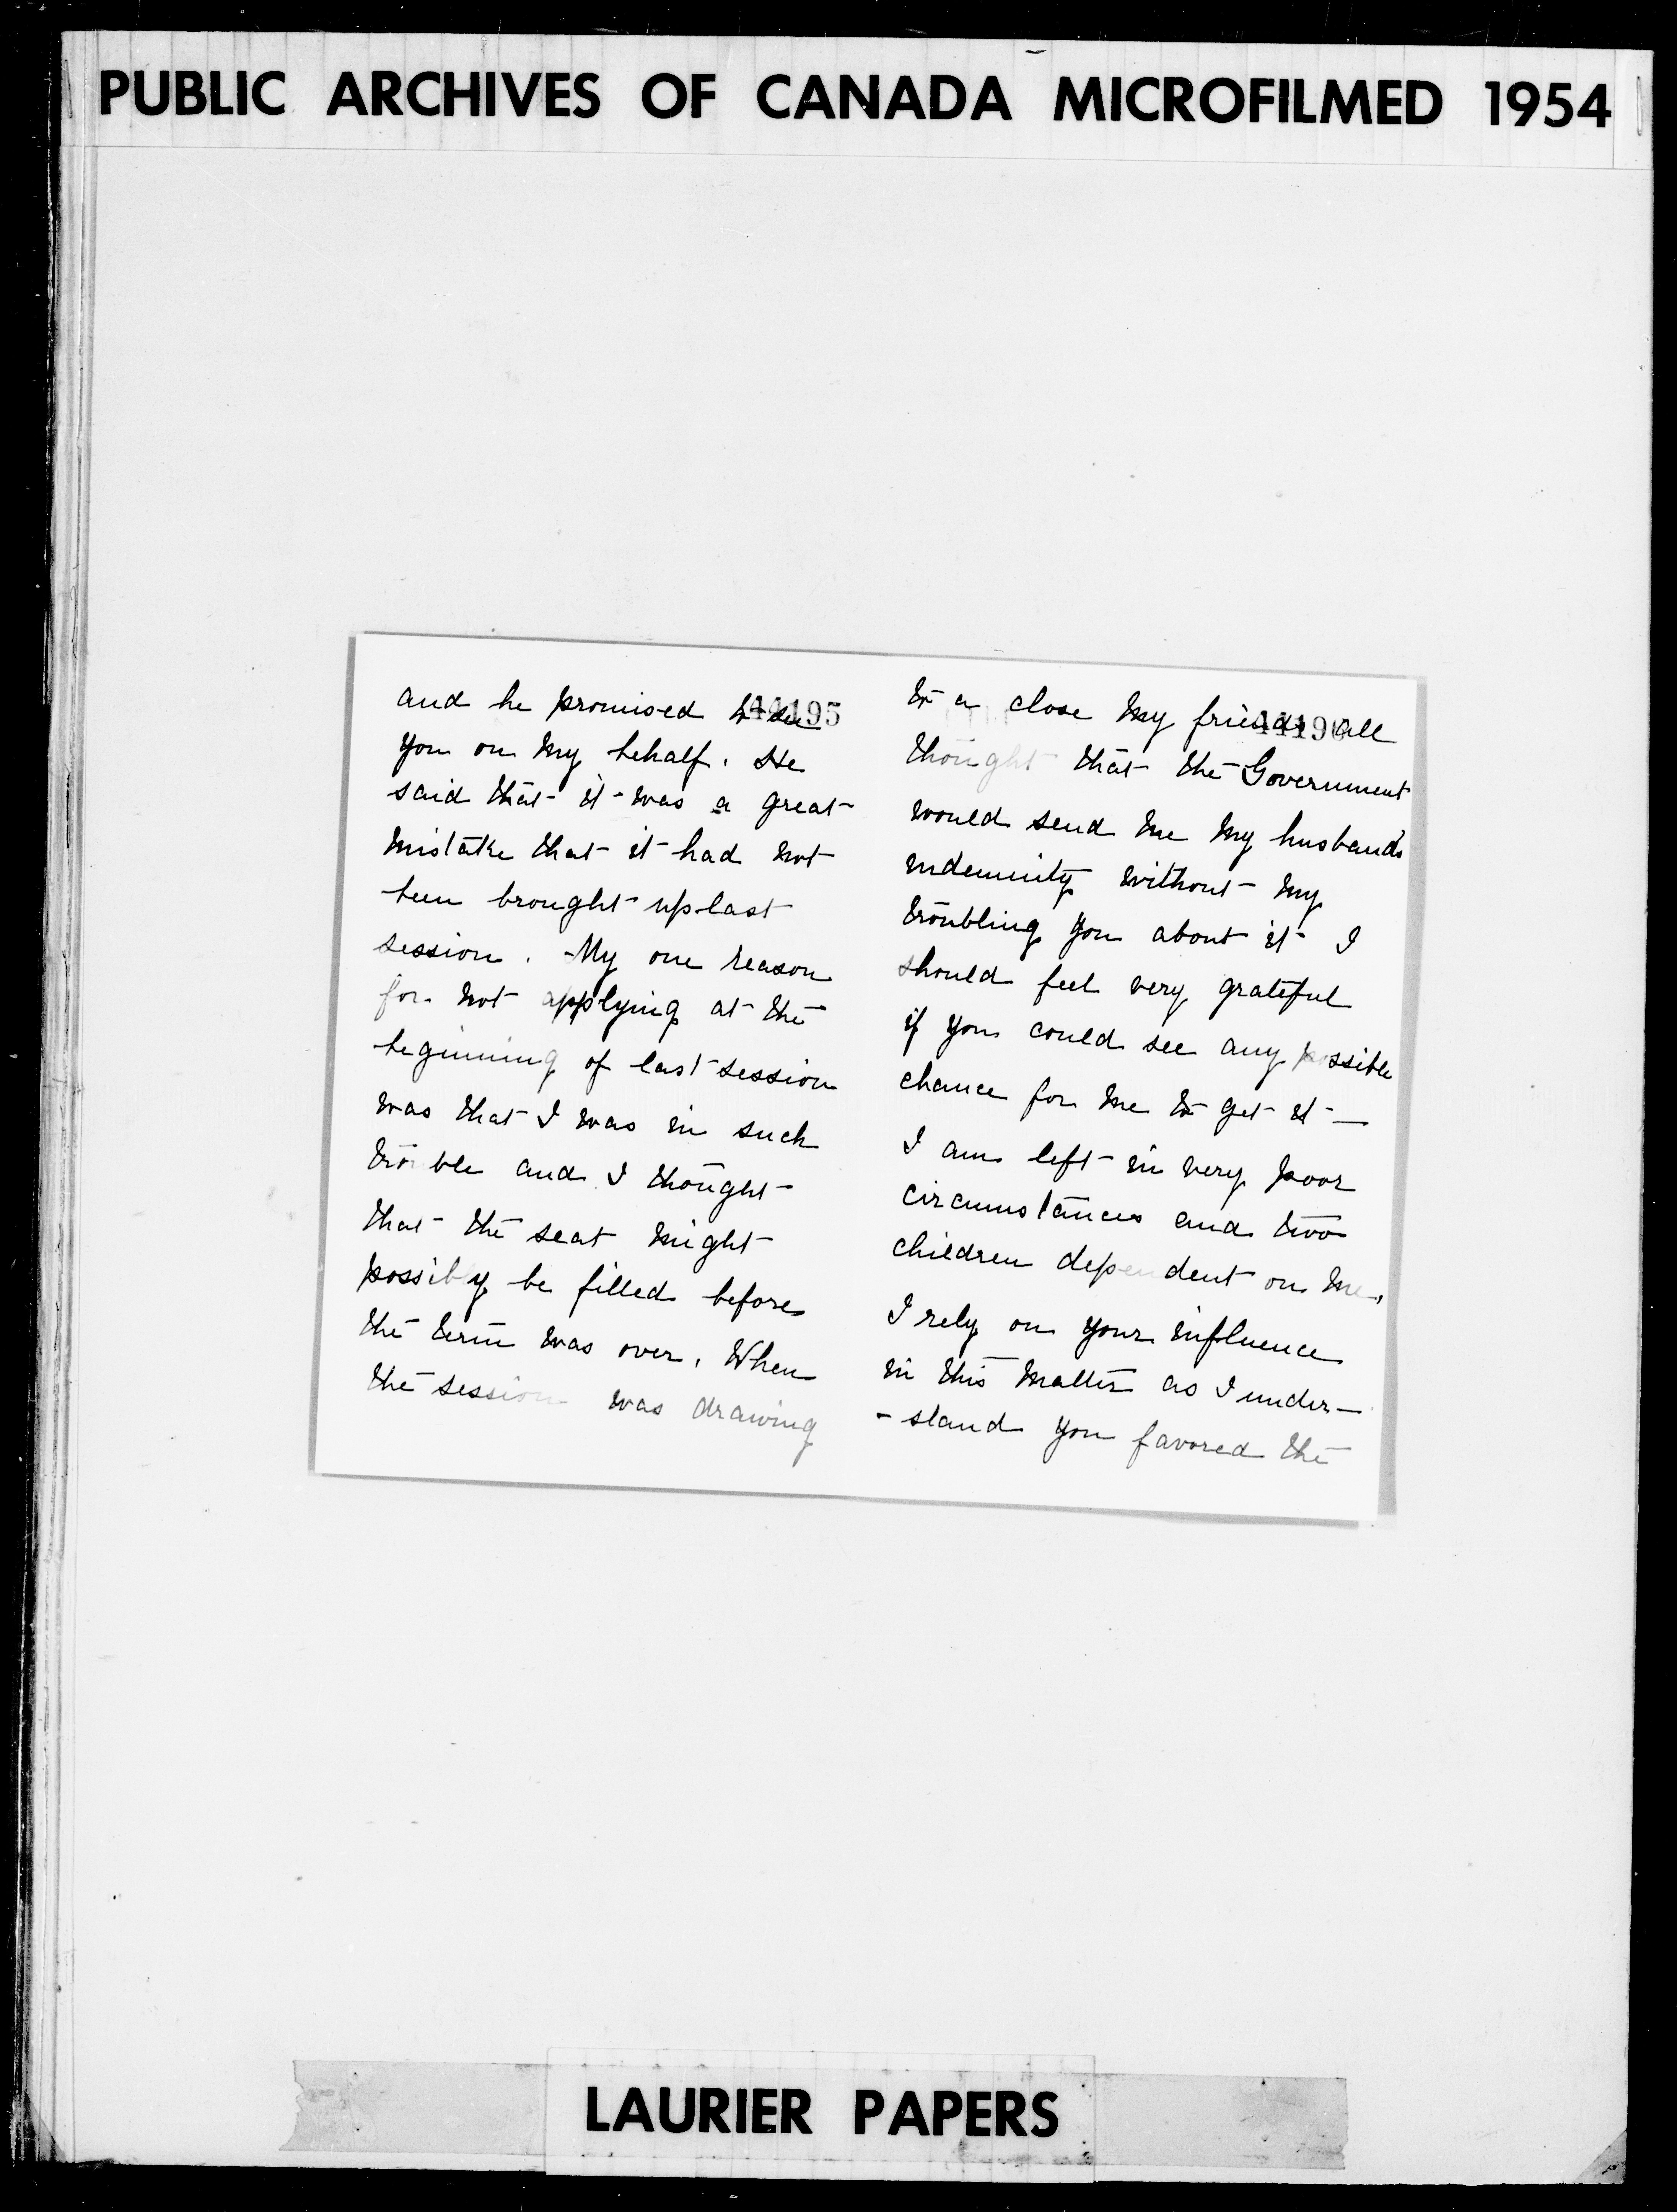 PUBLIC ARCHIVES OF CANADA MICROFILMED 1954
44195
and he promised to see
you on my behalf. He
said that it was a great
mistake that it had not
been brought up last
session. My one reason
for not applying at the
beginning of last session
was that I was in such
trouble and I thought
that the seat might
possibly be filled before
the term was over. When
the session was drawing
44196
to a close my friends all
thought that the Government
would send me my husbands
indemnity without my
troubling you about it I
should feel very grateful
if you could see any possible
chance for me to get it —
I am left in very poor
circumstances and two
children dependent on me.
I rely on your influence
in this matter as I under-
-stand you favored the
LAURIER PAPERS